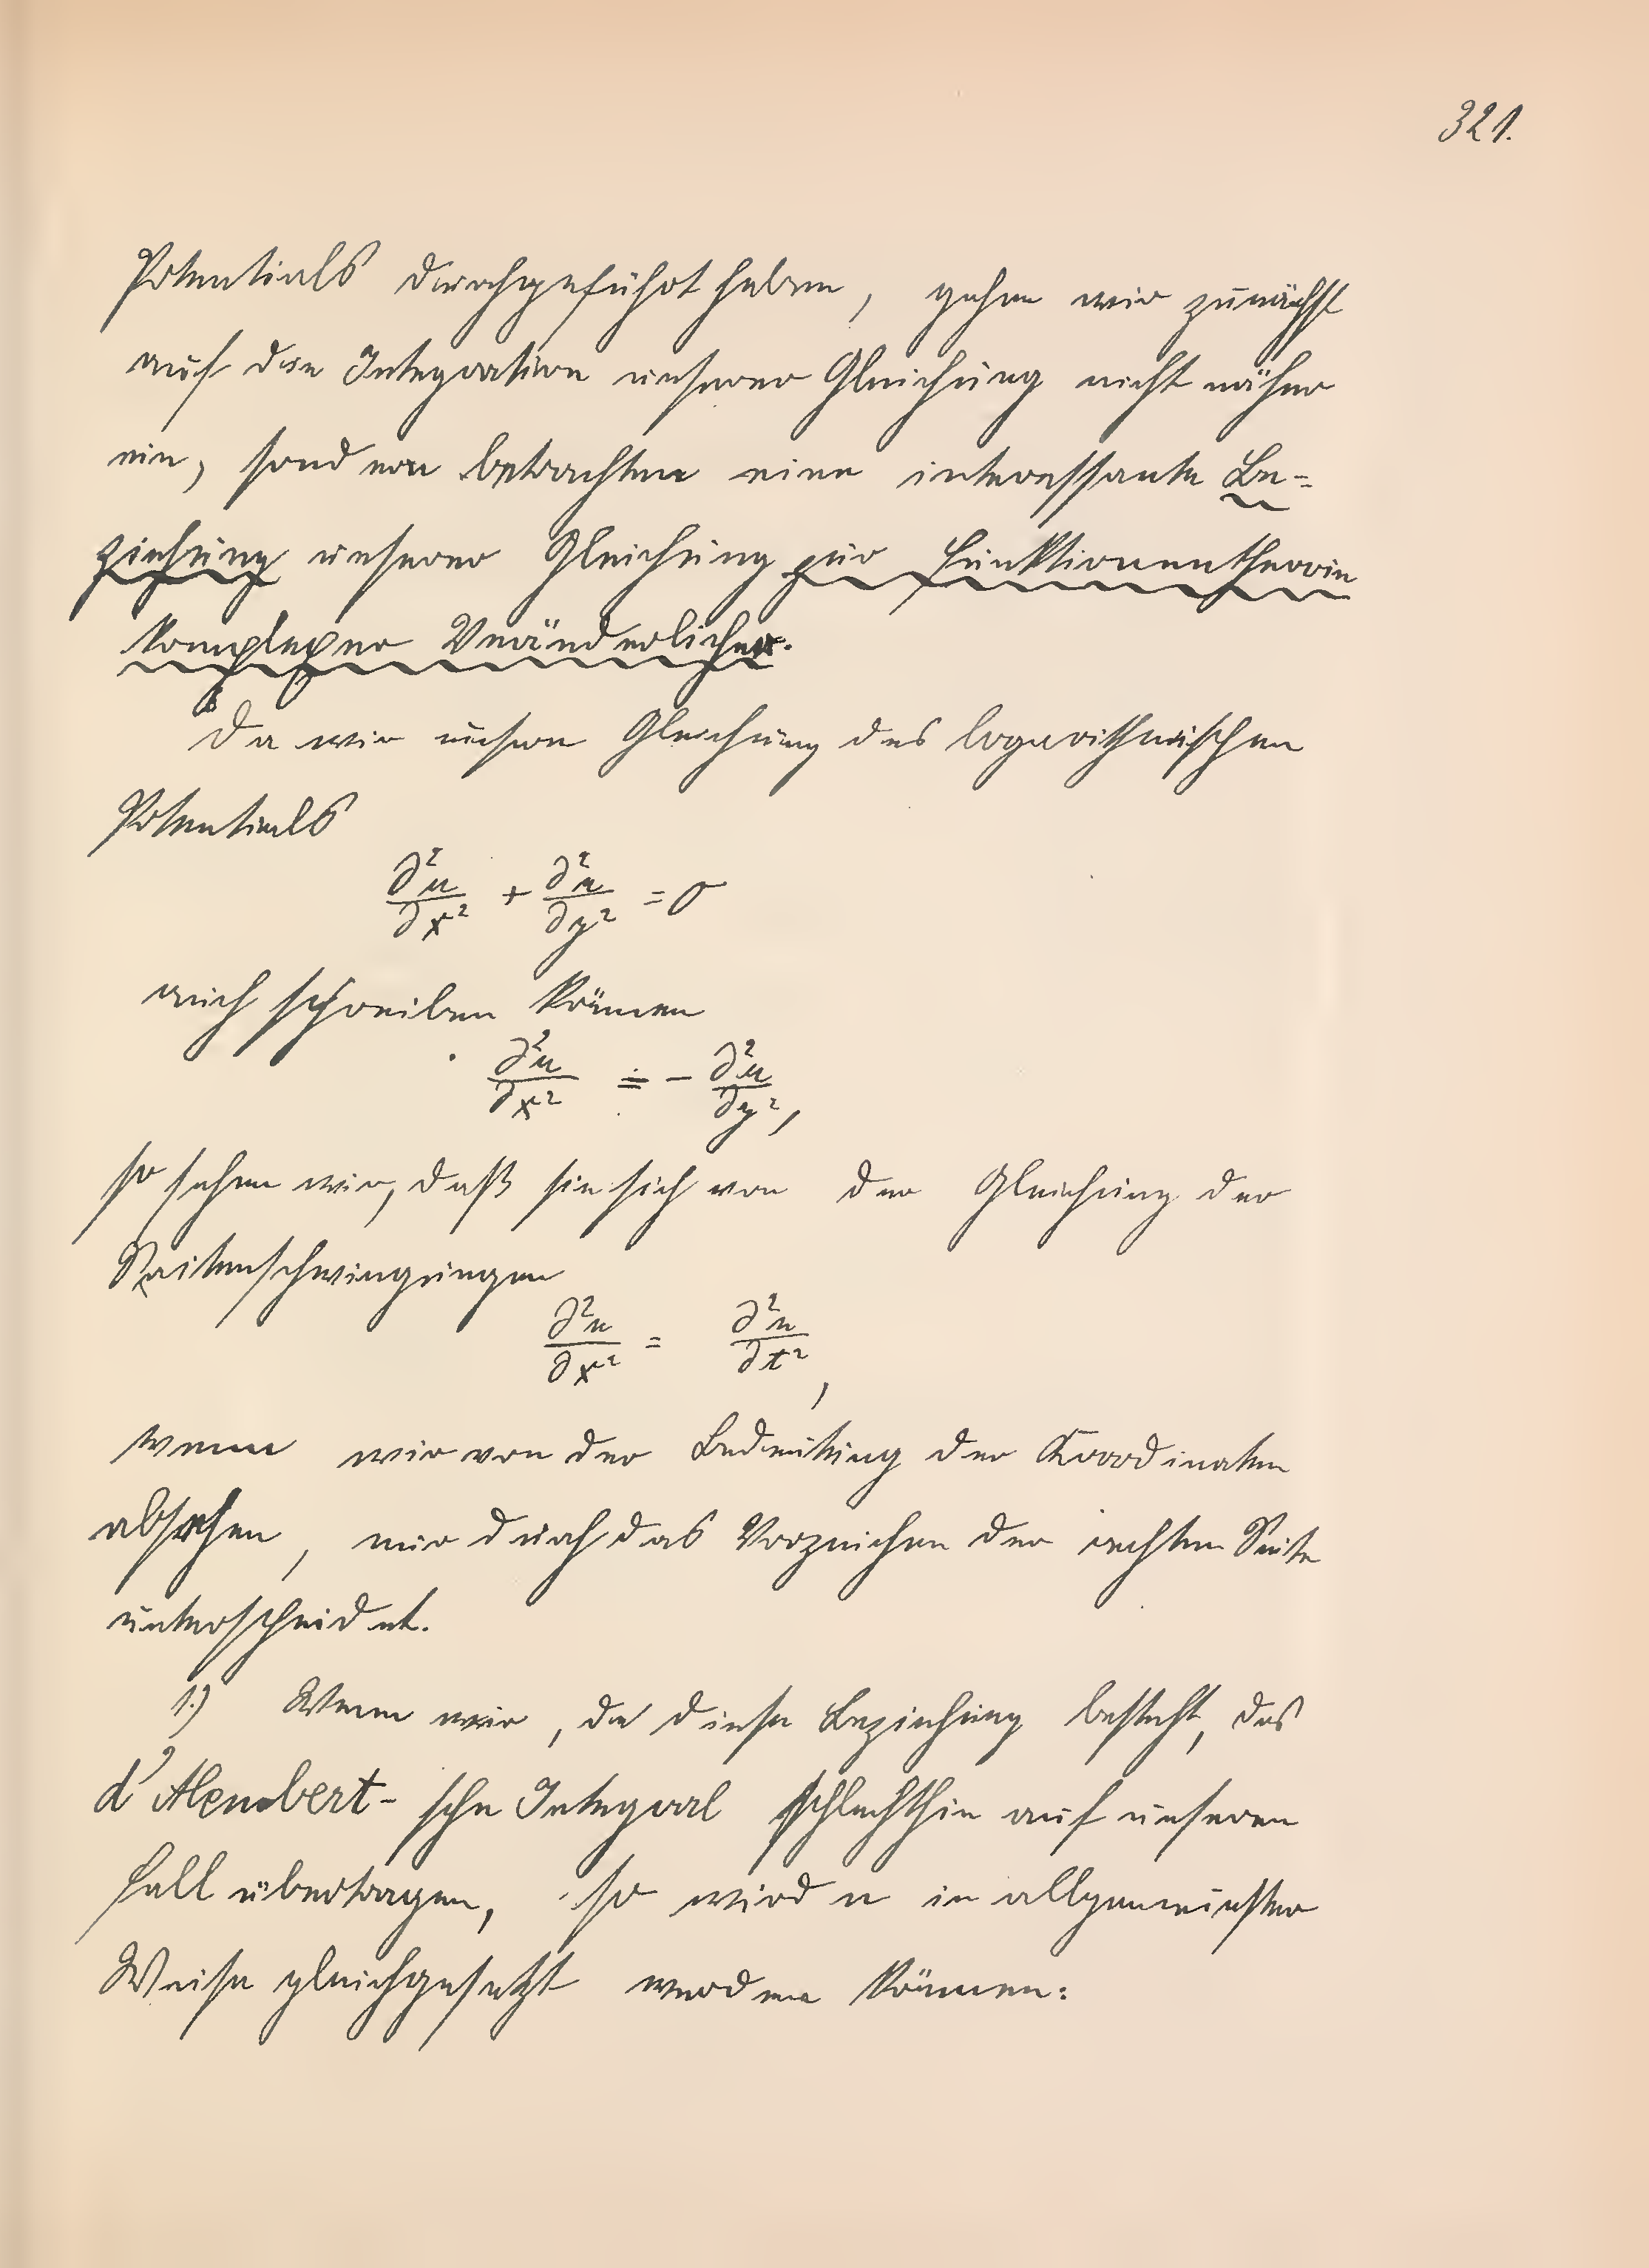 321.
Potentials durchgeführt haben, gehen wir zunächst
auf die Integration unserer Gleichung nicht näher
ein, sondern betrachten eine interessante Be-
ziehung unserer Gleichung zur Funktionentheorie
komplexer Veränderlicher.
Da wir unsere Gleichung des logarithmischen
Potentials
∂²u/∂x² + ∂²u/∂y² = 0
auch schreiben können
∂²u/∂x² = - ∂²u/∂y²,
so sehen wir, daß sie sich von der Gleichung der
Saitenschwingungen
∂²u/∂x² = ∂²u/∂t²,
wenn wir von der Bedeutung der Koordinaten
absehen, nur durch das Vorzeichen der rechten Seite
unterscheidet.
1.) Wenn wir, da diese Beziehung besteht, das
d'Alembert-sche Integral schlechthin auf unseren
Fall übertragen, so wird u in allgemeinster
Weise gleichgesetzt werden können: